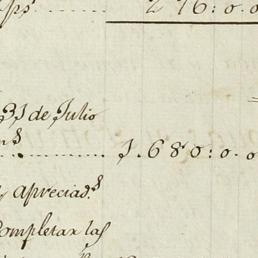 p.ˢ ..... 276:0.0
31 de Julio
n.ˢ ............ 1.680:0.0
apreciad.ˢ
Completar las